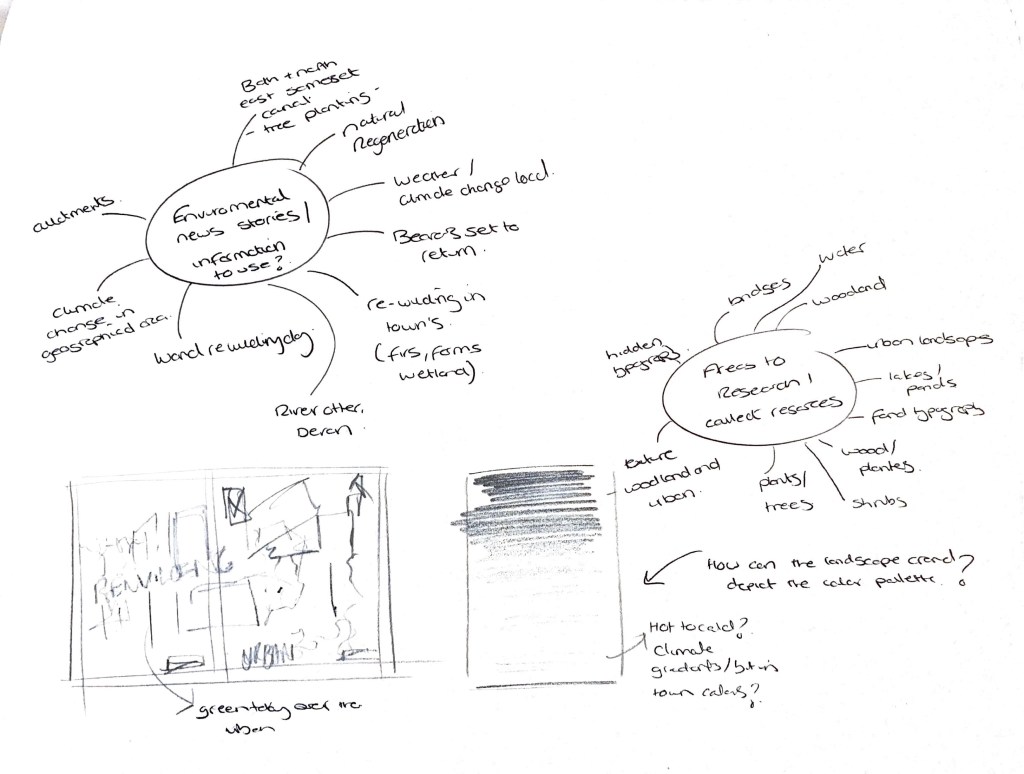 Bath + north
east somerset
canal.
- tree planting -
natural
Regeneration
weather /
climate change local.
Beavers set to
return.
re-wilding in
town's.
(firs, farms
wetland)
River otter,
Devon
World rewilding day
climate
change in
geographical area.
allotments.
Enviromental
news stories /
information
to use?
water
bridges
woodland
hidden
typography
urban landscapes
lakes /
ponds
found typography
wood /
plantes.
shrubs
plants /
trees
texture
woodland and
urban.
Areas to
Research /
collect resources
REWILDING
URBAN
green taking over the
urban
How can the landscape around
depict the color pallette?
Hot to cold?
Climate
gradients /
town colors?